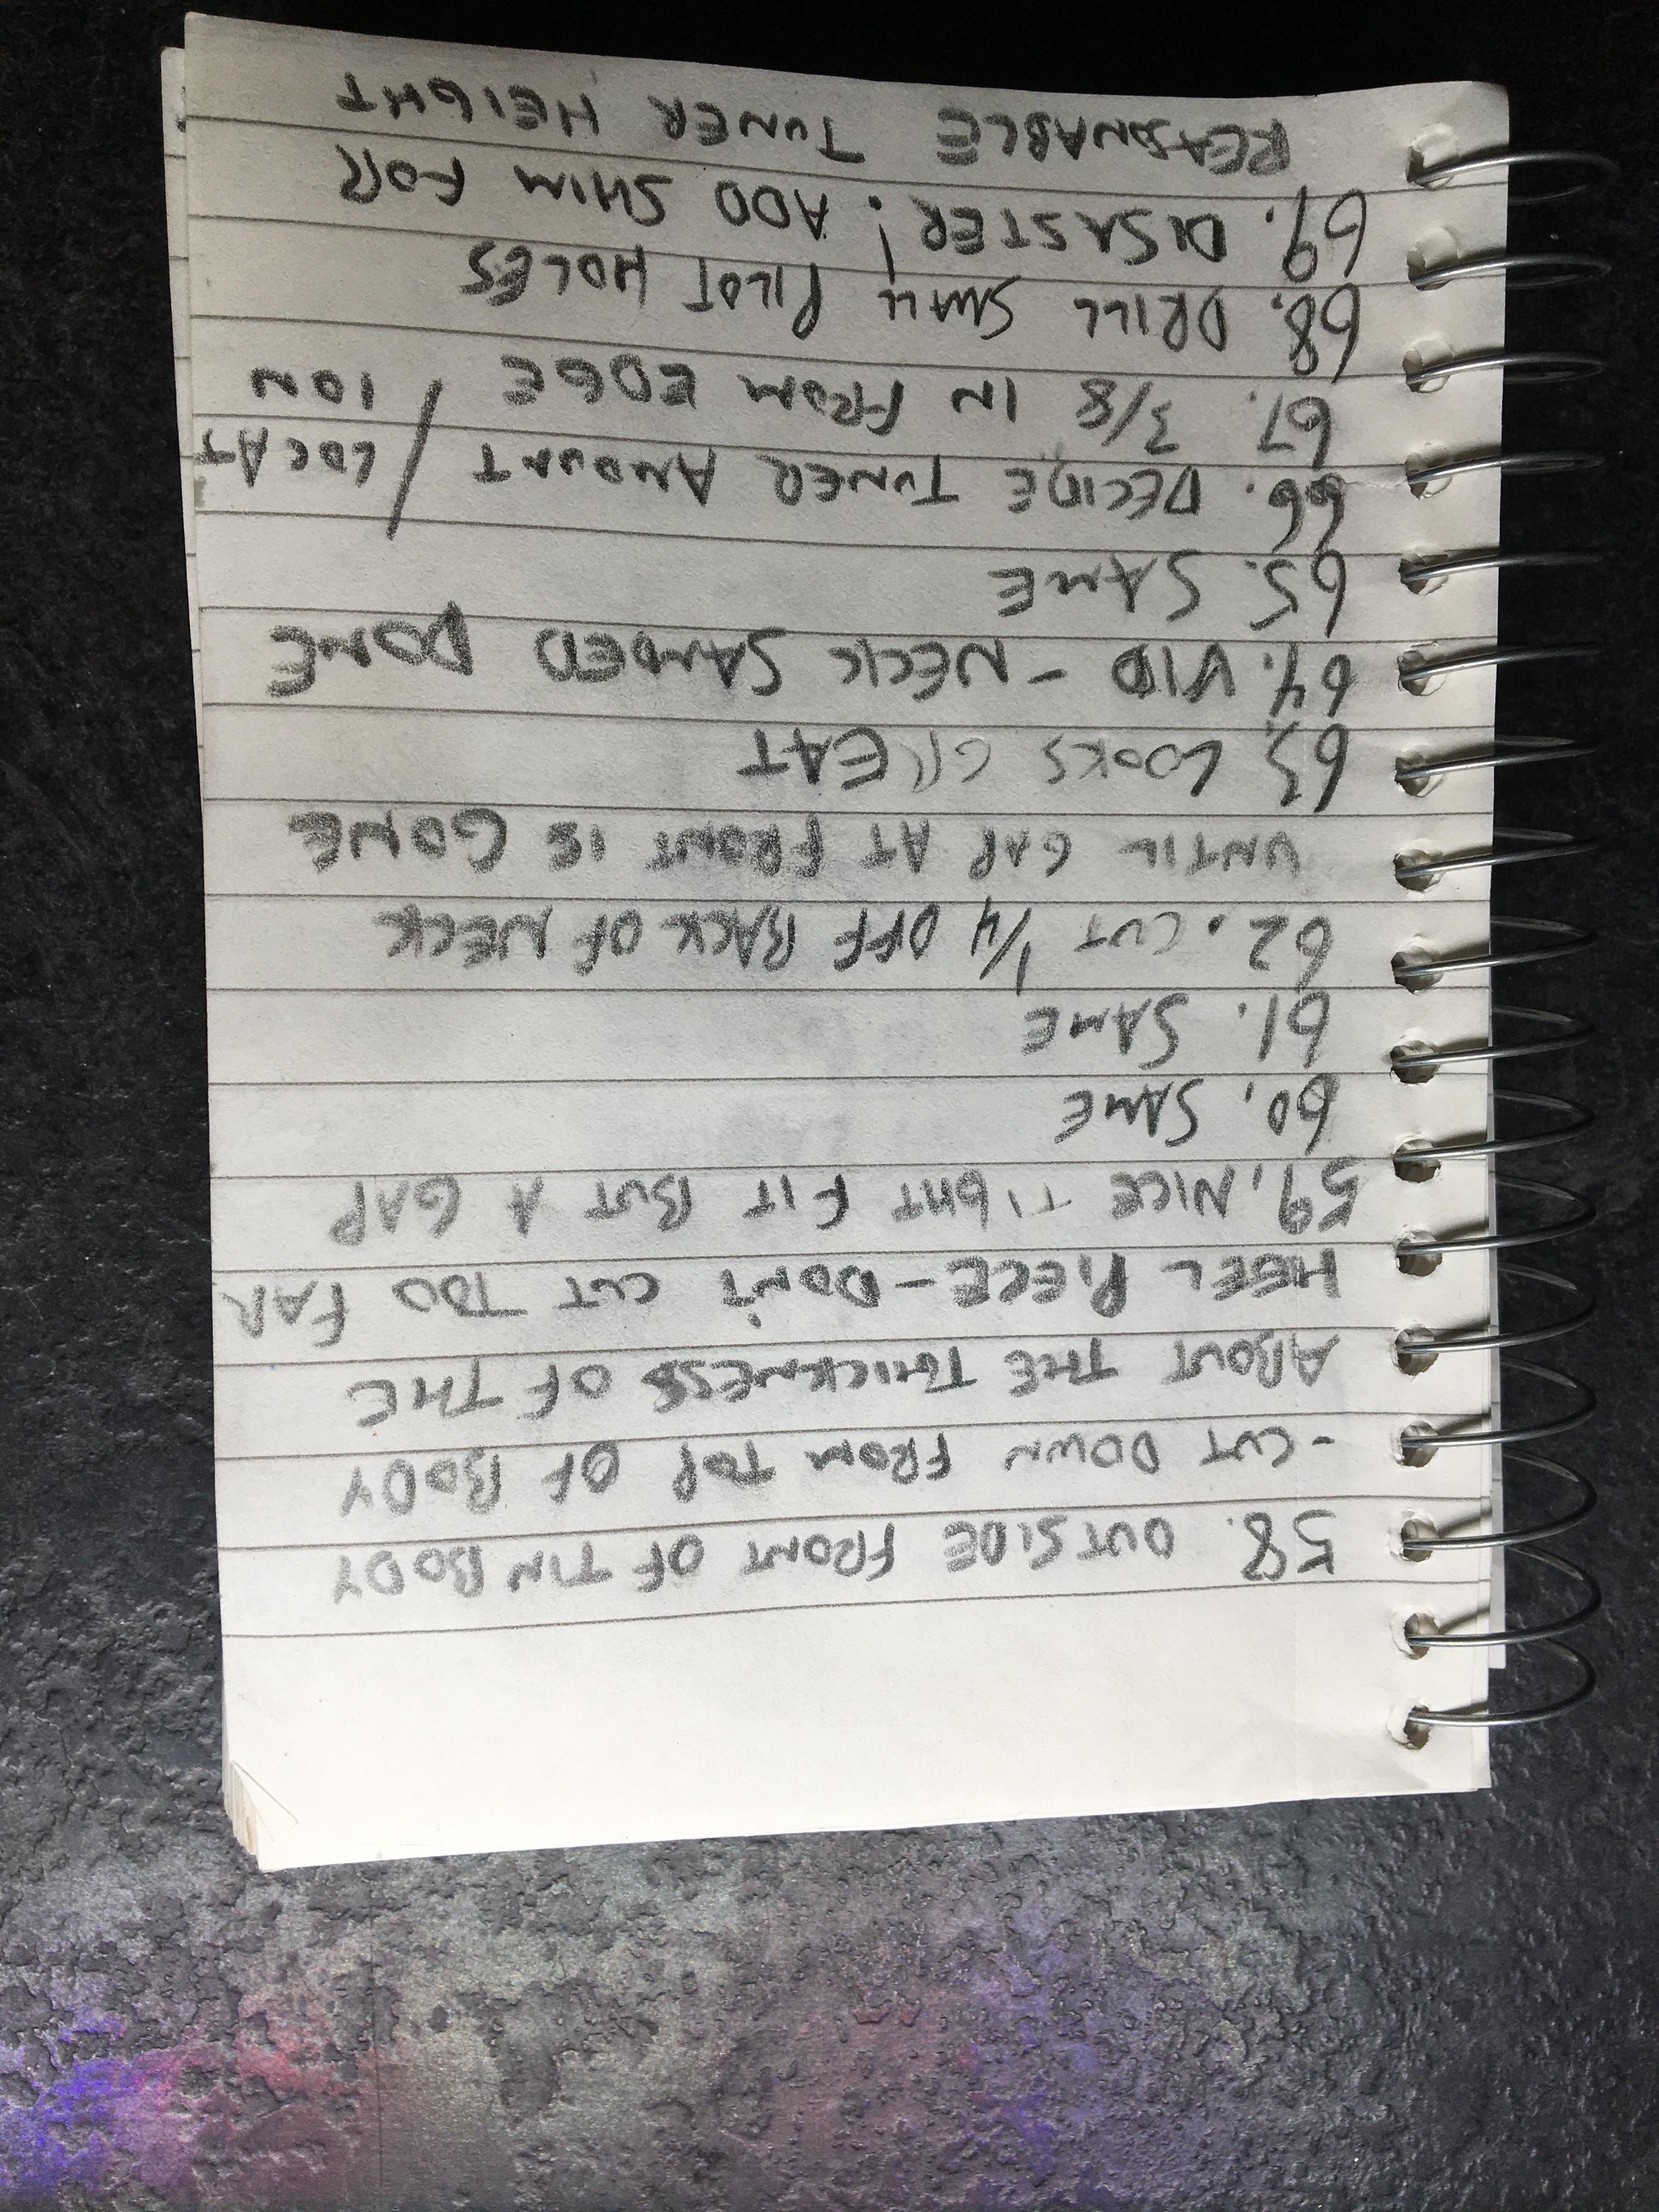 58. OUTSIDE FRONT OF TIN BODY
- CUT DOWN FROM TOP OF BODY
ABOUT THE THICKNESS OF THE
HEEL PIECE - DON'T CUT TOO FAR
59. NICE TIGHT FIT BUT A GAP
60. SAME
61. SAME
62. CUT 1/4 OFF BACK OF NECK
UNTIL GAP AT FRONT IS GONE
63. LOOKS GREAT
64. VID - NECK SANDED DONE
65. SAME
66. DECIDE TUNER AMOUNT / LOCAT
ION
67. 3/8 IN FROM EDGE
68. DRILL SMALL PILOT HOLES
69. DISASTER! ADD SHIM FOR
REASONABLE TUNER HEIGHT